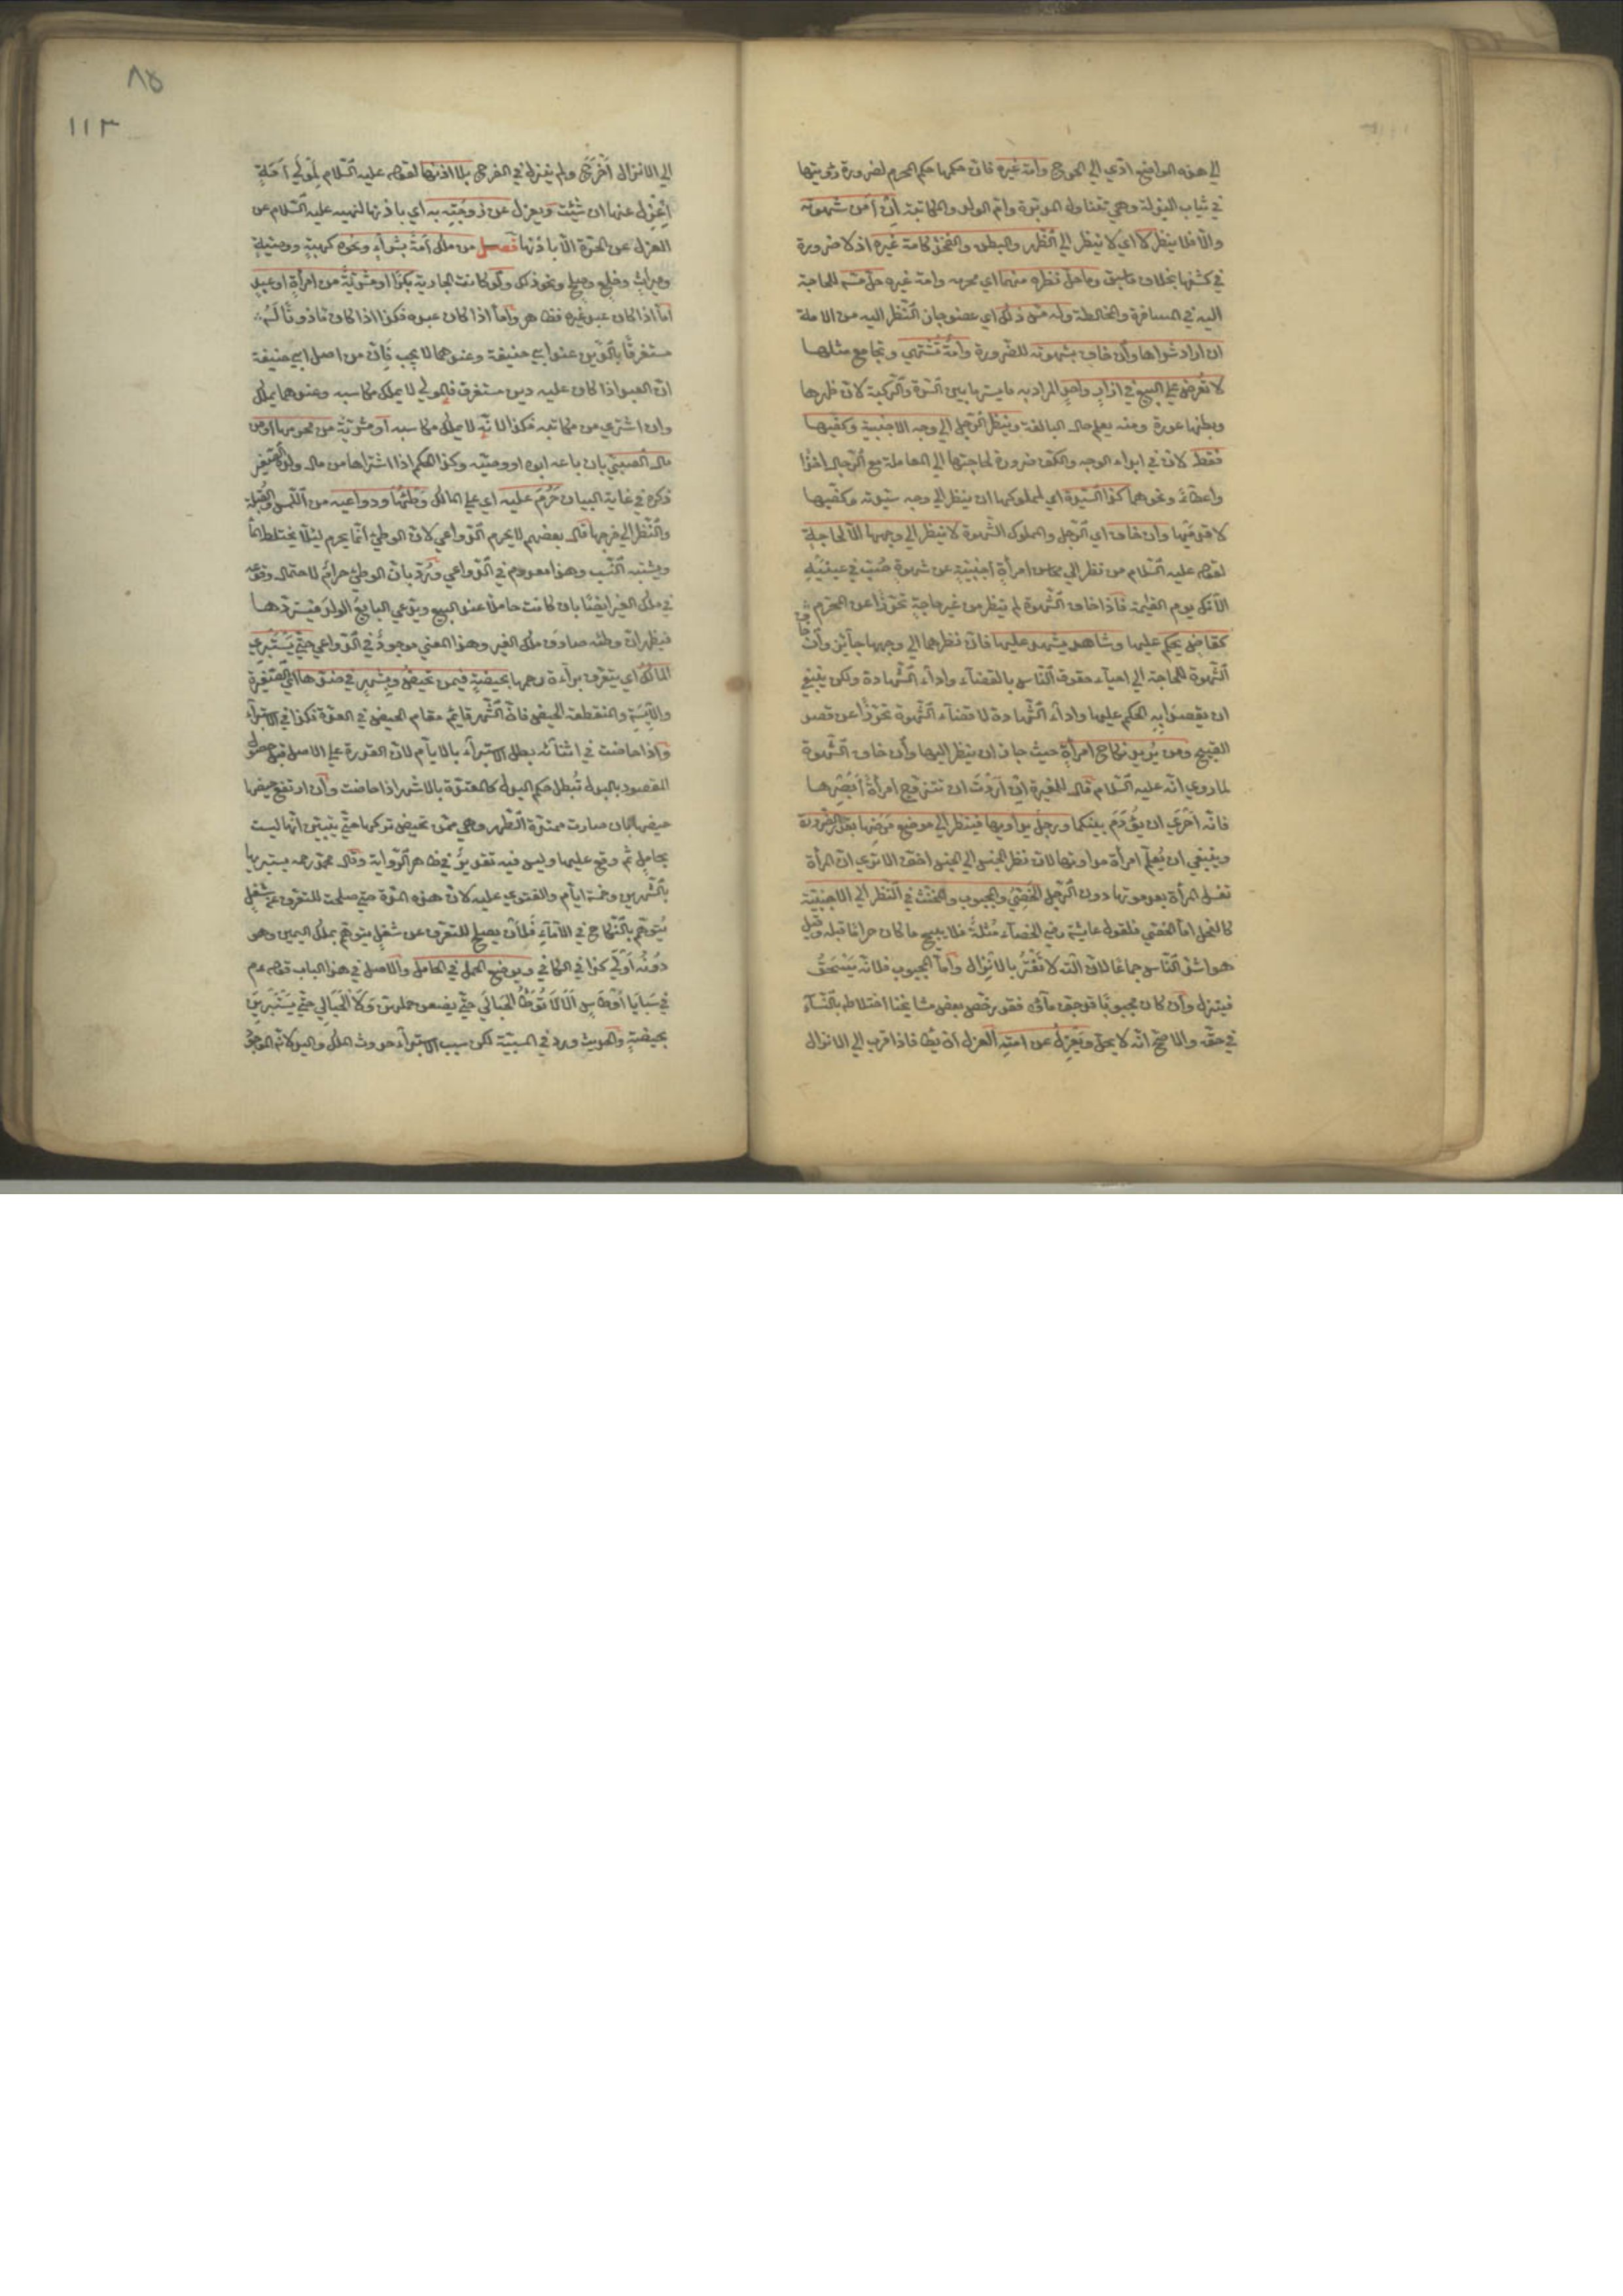 الي هذه المواضع ادّي الي الحرج وامة غيره فان حكمها حكم المحرم لضرورة رؤيتها
في ثياب البذلة وهي تتناول المدبّرة وامّ الولد والمكاتبة ان امن شهوته
والّا فلا ينظر كا اي لا ينظر الي الظهر والبطن والفخذ كامة غيره اذ لا ضرورة
في كشفها بخلاف ما سبق وما حلّ نظره منهما اي محرمه وامة غيره حلّ مسّه للحاجة
اليه في المسافرة والمخالطة وله مسّ ذلك اي عضو جاز النّظر اليه من الامة
ان اراد شراها وان خاف بشهوته للضّرورة وامة تشتهي وتجامع مثلها
لا تعرض علي البيع في ازار واحد المراد به ما يستر ما بين السّرة والرّكبة لان ظهرها
وبطنها عورة ومنه يعلم حال البالغة وينظر الرّجل الي وجه الاجنبية وكفّيها
فقط لان في ابداء الوجه والكف ضرورة لحاجتها الي المعاملة مع الرّجال اخذا
واعطاء ونحوهما كذا السّيدة اي لمملوكها ان ينظر الي وجه سيّدته وكفّيها
لا قدميها وان خاف اي الرّجل والمملوك الشّهوة لا ينظر الي وجهها الّا لحاجة
لقوله عليه السّلام من نظر الي محاسن امرأة اجنبية عن شهوة صبّ في عينيه
الآنك يوم القيمة فاذا خاف الشّهوة لم ينظر من غير حاجة تحرّزا عن المحرّم
كقاض يحكم عليها وشاهد يشهد عليها فان نظرهما الي وجهها جائز وان خاف
الشّهوة للحاجة الي احياء حقوق النّاس بالقضاء واداء الشّهادة ولكن ينبغي
ان يقصد به الحكم عليها واداء الشّهادة لا قضاء الشّهوة تحرّزا عن قصد
القبيح ومن يريد نكاح امرأة حيث جاز ان ينظر اليها وان خاف الشّهوة
لما روي انّه عليه السّلام قال للمغيرة ان اردت ان تتزوّج امرأة ابصرها
فانّه احري ان يؤدم بينكما ورجل يداويها فينظر الي موضع مرضها بقدر الضّرورة
وينبغي ان يعلّم امرأة مداواتها لان نظر الجنس الي الجنس اخف الا تري ان المرأة
تغسل المرأة بعد موتها دون الرّجل الخصيّ والمجبوب والمخنّث في النّظر الي الاجنبيّة
كالفحل امّا الخصي فلقول عايشة رضي الخصاء مثلة فلا يبيح ما كان حراما قبله وقيل
هو اشدّ النّاس جماعا لان آلته لا تفتر بالانزال وامّا المجبوب فلانّه يسحق
فينزل وان كان مجبوبا قد جف ماؤه فقد رخّص بعض مشايخنا اختلاطه بالنّساء
في حقّه والاصح انّه لا يحل ويعزل عن امته العزل ان يطأ فاذا قرب الي الانزال
٨٥
١١٣
الي الانزال اخرج ولم ينزل في الفرج بلا اذنها لقوله عليه السّلام لمولي امة
اعزل عنها ان شئت ويعزل عن زوجته به اي باذنها لنهيه عليه السّلام عن
العزل عن الحرّة الّا باذنها فصل من ملك امة بشراء ونحوه كهبة ووصية
وميراث وخلع وصلح ونحو ذلك ولو كانت الجارية بكرا او مشريّة من امرأة او عبد
امّا اذا كان عبد غيره فظاهر وامّا اذا كان عبده فكذا اذا كان ماذونا له
مستغرقا بالدّين عند ابي حنيفة وعندهما لا يجب فان من اصل ابي حنيفة
ان العبد اذا كان عليه دين مستغرق فالمولي لا يملك مكاسبه وعندهما يملك
وان اشتري من مكاتبه فكذا لانّه لا يملك مكاسبه او مشريّة من محرمها او من
مال الصبيّ بان باعه ابوه او وصيّه وكذا الحكم اذا اشتراها من مال ولده الصّغير
ذكره في غاية البيان حرم عليه اي علي المالك وطئها ودواعيه من اللّمس والقبلة
والنّظر الي فرجها قال بعضهم لا يحرم الدّواعي لان الوطئ انّما يحرم ليلّا يختلط الماء
ويشتبه النّسب وهذا معدوم في الدّواعي وردّ بان الوطئ حرام لاحتمال وقوعه
في ملك الغير ايضا بان كانت حاملا عند البيع ويدّعي البايع الولد فيستردّها
فيظهر ان وطئه صادف ملك الغير وهذا المعني موجود في الدّواعي حتّي يستبرئ
المالك اي يتعرّف براءة رحمها بحيضة فيمن تحيض وبشهر في ضدّها اي الصّغيرة
والآيسة والمنقطعة الحيض فان الشّهر قايم مقام الحيض في العدّة فكذا في الاستبراء
واذا حاضت في اثنائه بطل الاستبراء بالايام لان القدرة علي الاصل قبل حصول
المقصود بالبدل تبطل حكم البدل كالمعتدّة بالاشهر اذا حاضت وان ارتفع حيضها
حيضها بان صارت ممتدّة الطّهر وهي ممّن تحيض تركها حتّي يتبيّن انّها ليست
بحامل ثم وقع عليها وليس فيه تقدير في ظاهر الرّواية وقال محمّد رحمه يستبريها
بالشّهرين وخمسة ايام والفتوي عليه لان هذه المدّة متي صلحت للتعرّف عن شغل
يتوهّم بالنّكاح في الاماء فلان يصلح للتعرّف عن شغل يتوهّم بملك اليمين وهو
دونه اولي كذا في الكافي وبوضع الحمل في الحامل والاصل في هذا الباب قوله عم
في سبايا اوطاس الا لا توطأ الحبالي حتّي يضعن حملهن ولا الحيالي حتّي يستبرين
بحيضة والحديث ورد في المسبيّة لكن سبب الاستبراء حدوث الملك واليد لانّه الموجود